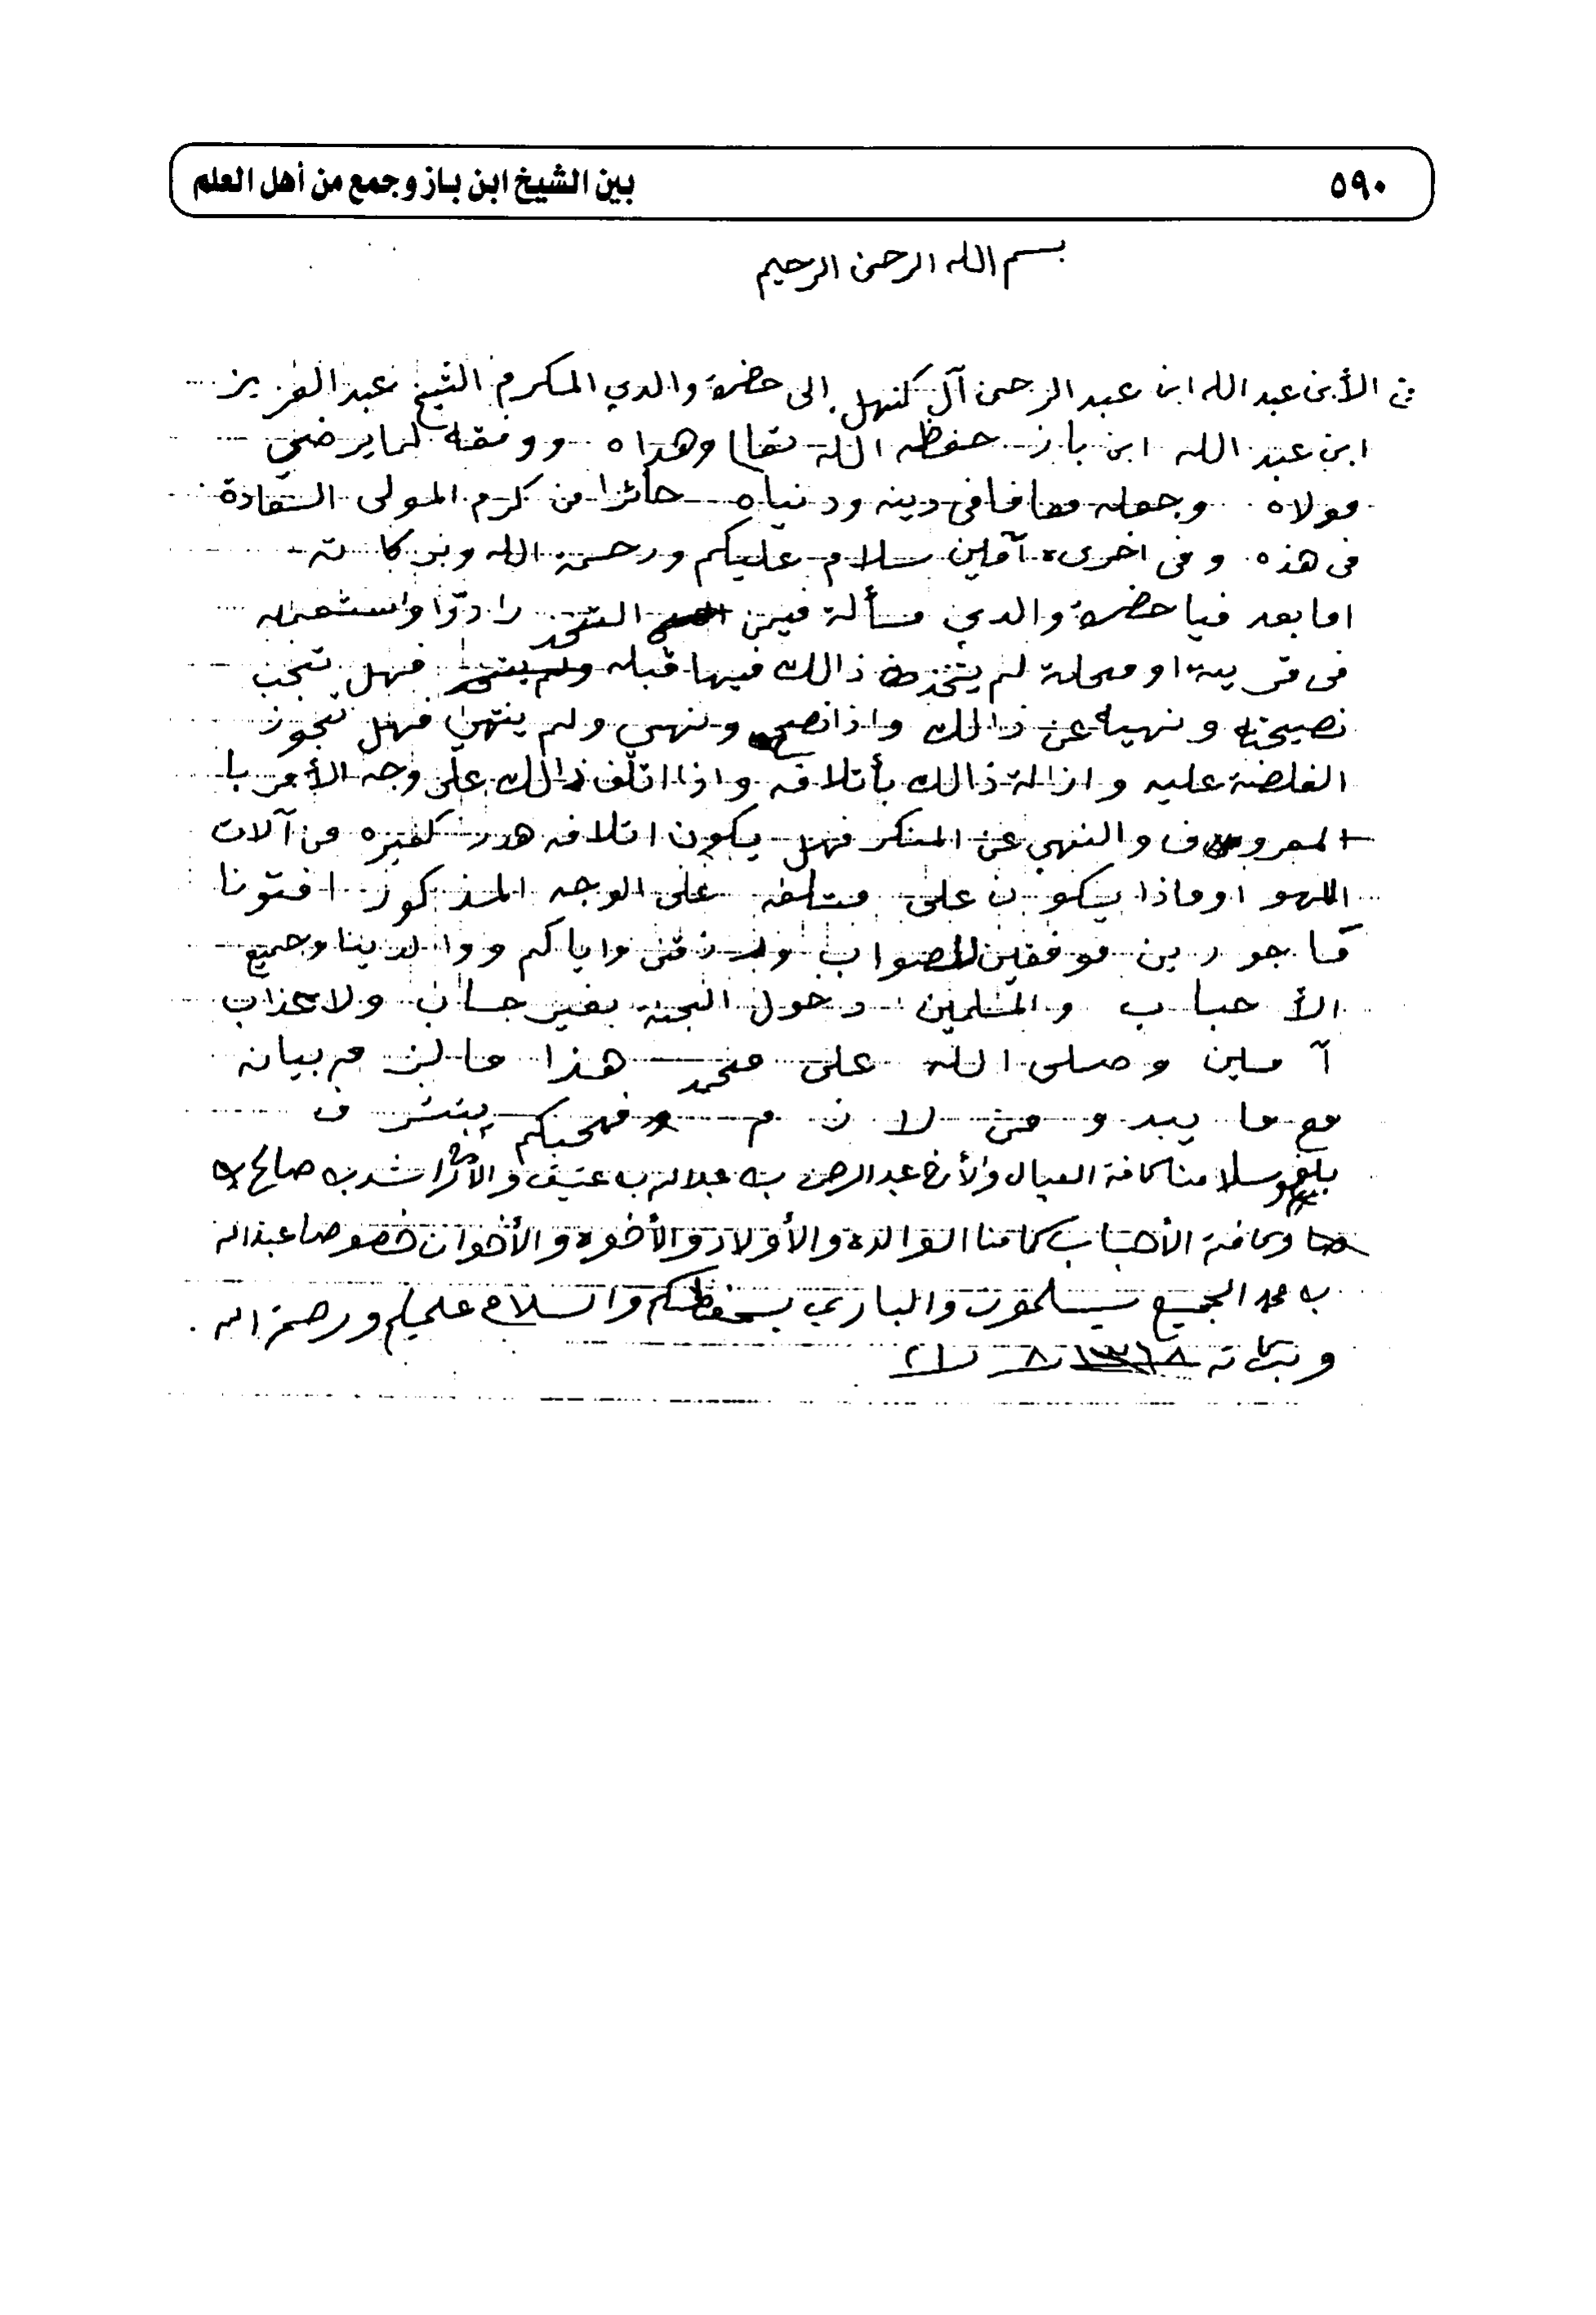 ٥٩٠
بين الشيخ ابن باز وجمع من أهل العلم
بسم الله الرحمن الرحيم
من الأبن عبد الله ابن عبد الرحمن آل كنهل إلى حضرة والدي المكرم الشيخ عبد العزيز
ابن عبد الله ابن باز حفظه الله تعالى وهداه ووفقه لما يرضي
مولاه وجعله معافا في دينه ودنياه حائزا من كرم المولى السعادة
في هذه وفي اخرىه آملين سلام عليكم ورحمة الله وبركاته
اما بعد فيا حضرة والدي مسألة فيمن اتخذ رادوا واستعمله
في قرية او محلة لم يتخذ ذالك فيها قبله فهل تجب
نصيحته ونهيه عن ذالك واذا نصح ونهي ولم ينتهي فهل تجوز
الغلضة عليه وازالة ذالك بأتلافه واذا اتلف ذالك على وجه الأمر با
المعروف والنهي عن المنكر فهل يكون اتلافه هدر كغيره من آلات
اللهو او ماذا يكون على متلفه على الوجه المذكور افتونا
مأجورين موفقين للصواب ورزقني واياكم ووالدينا وجميع
الأحباب والمسلمين دخول الجنة بغير حساب ولا عذاب
آمين وصلى الله على محمد هذا ما لزم بيانه
مع ما يبدو من لازم فمحبكم يتشرف
بلغو سلامنا كافة العيال والأخ عبد الرحمن بن عبد الله بن عتيق والأخ راشد بن صالح
وكافة الأحباب كما منا الوالدة والأولاد والأخوه والأخوان خصوصا عبد الله
بن محمد الجميع يسلمون والباري يحفظكم والسلام عليكم ورحمة الله
وبركاته ١٣٦٨ / ٨ / ٢١